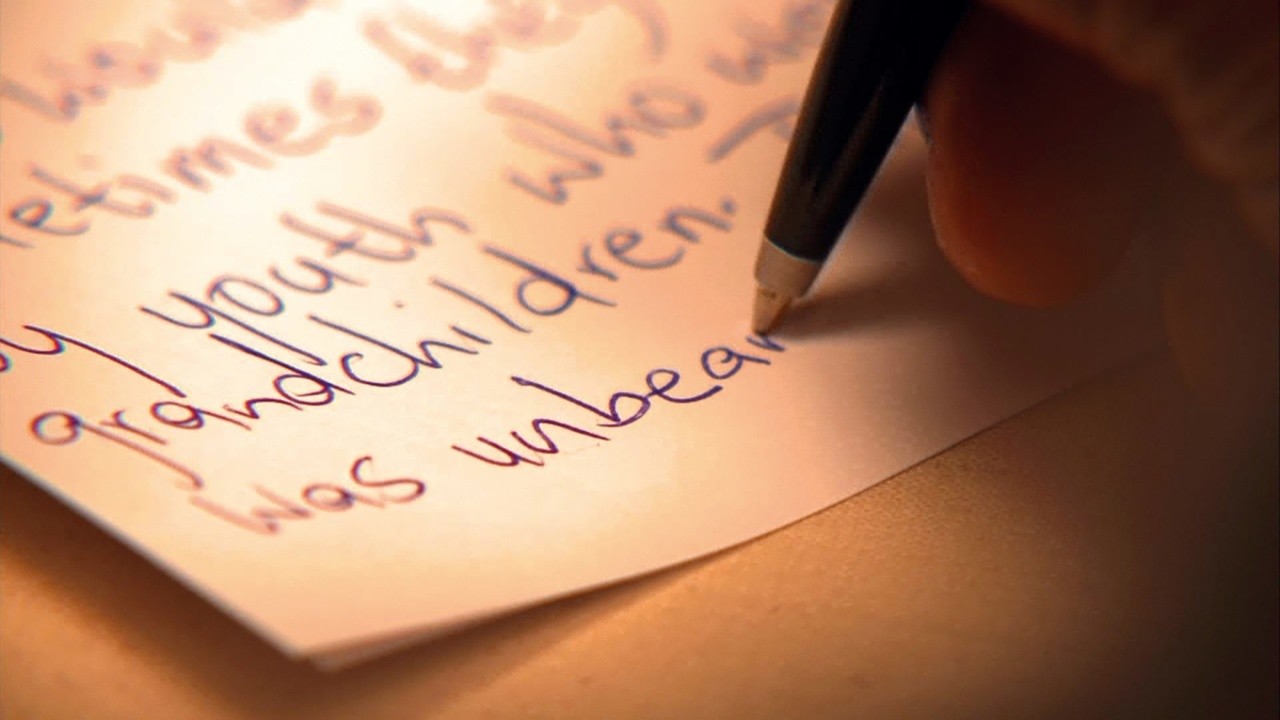 etimes they
by youth who
grandchildren.
was unbear